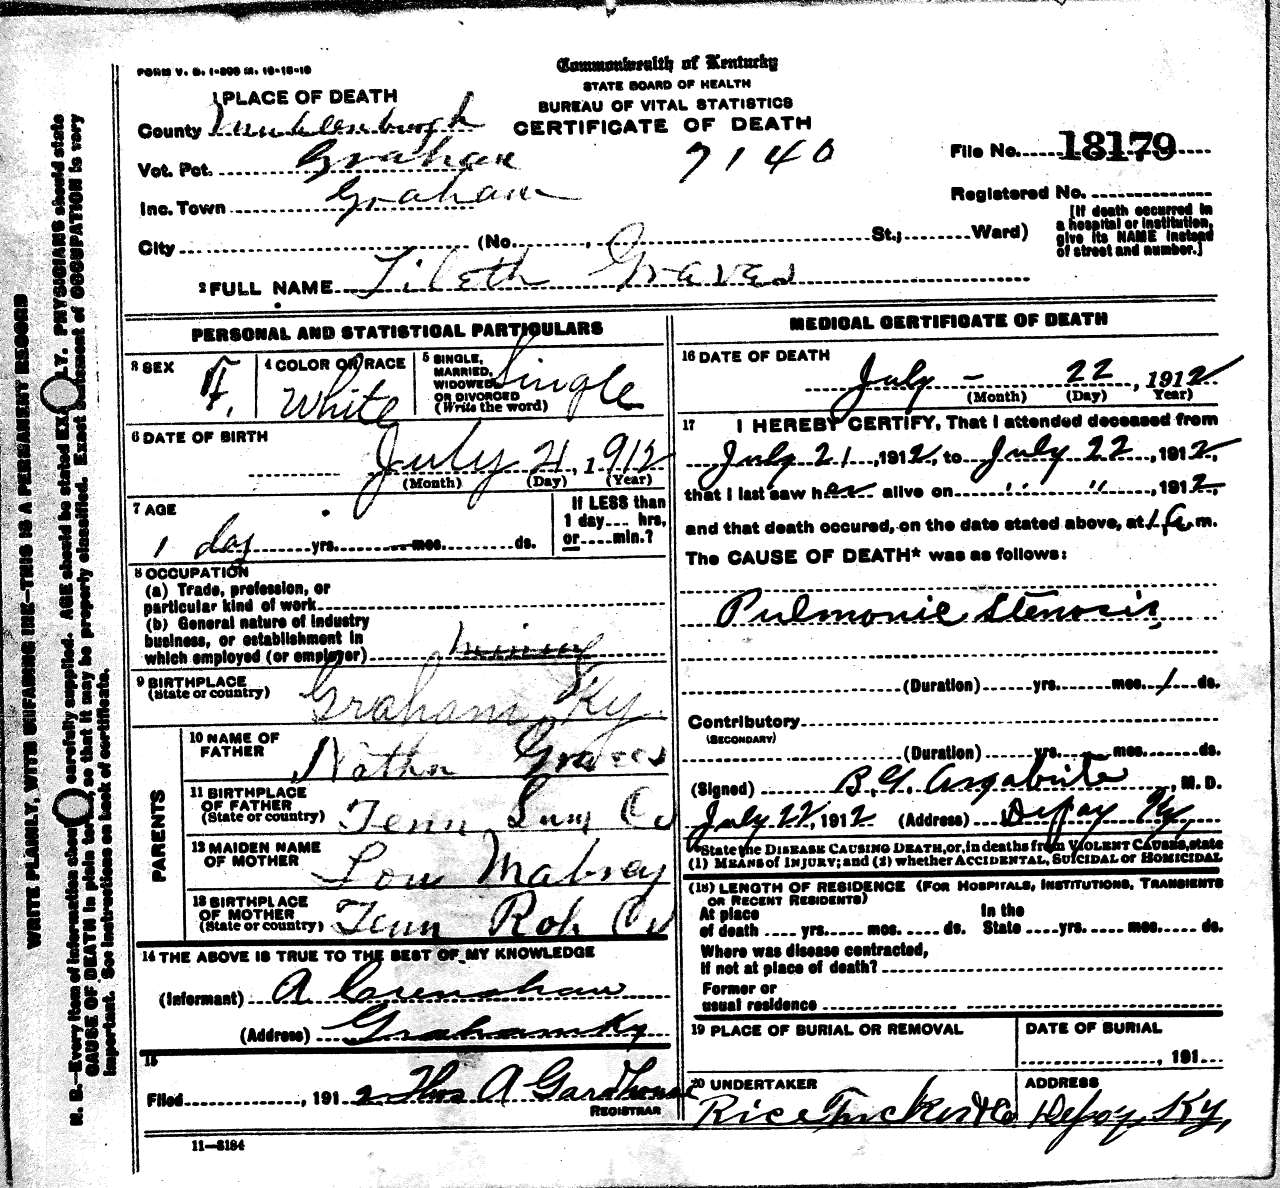 FORM V. S. 1-
Commonwealth of Kentucky
STATE BOARD OF HEALTH
BUREAU OF VITAL STATISTICS
CERTIFICATE OF DEATH
1 PLACE OF DEATH
County Muhlenburgh
Vot. Pct. Graham
7140
File No. 18179
Inc. Town Graham
Registered No.
City (No. , St.; Ward)
[If death occurred in a hospital or institution, give its NAME instead of street and number.]
2 FULL NAME Tileth Graves
PERSONAL AND STATISTICAL PARTICULARS
3 SEX F.
4 COLOR OR RACE White
5 SINGLE, MARRIED, WIDOWED OR DIVORCED (Write the word) Single
6 DATE OF BIRTH
July 21, 1912
(Month) (Day) (Year)
7 AGE
1 day yrs. mos. ds.
If LESS than 1 day hrs. or min.?
8 OCCUPATION
(a) Trade, profession, or
particular kind of work
(b) General nature of industry
business, or establishment in
which employed (or employer) mining
9 BIRTHPLACE
(State or country) Graham, Ky.
PARENTS
10 NAME OF FATHER Nathn Graves
11 BIRTHPLACE OF FATHER (State or country) Tenn Sum Co
12 MAIDEN NAME OF MOTHER Lou Mabrey
13 BIRTHPLACE OF MOTHER (State or country) Tenn Rob Co
14 THE ABOVE IS TRUE TO THE BEST OF MY KNOWLEDGE
(Informant) A Crenshaw
(Address) Graham Ky
15
Filed , 1912 Thos A Gardhouse
REGISTRAR
11—3184
MEDICAL CERTIFICATE OF DEATH
16 DATE OF DEATH
July - 22, 1912
(Month) (Day) (Year)
17 I HEREBY CERTIFY, That I attended deceased from
July 21, 1912, to July 22, 1912,
that I last saw her alive on " ", 1912,
and that death occured, on the date stated above, at 1 a m.
The CAUSE OF DEATH* was as follows:
Pulmonic Stenosis
(Duration) yrs. mos. 1 ds.
Contributory
(SECONDARY)
(Duration) yrs. mos. ds.
(Signed) B.Y. Argabrite, M. D.
July 22, 1912 (Address) Depoy Ky,
*State the DISEASE CAUSING DEATH, or, in deaths from VIOLENT CAUSES, state
(1) MEANS of INJURY; and (2) whether ACCIDENTAL, SUICIDAL or HOMICIDAL
(18) LENGTH OF RESIDENCE (FOR HOSPITALS, INSTITUTIONS, TRANSIENTS
OR RECENT RESIDENTS)
At place of death yrs. mos. ds. In the State yrs. mos. ds.
Where was disease contracted,
If not at place of death?
Former or
usual residence
19 PLACE OF BURIAL OR REMOVAL
DATE OF BURIAL
, 191
20 UNDERTAKER
ADDRESS
Rice Tucker & Co Depoy, Ky,
WRITE PLAINLY, WITH UNFADING INK—THIS IS A PERMANENT RECORD
N. B.—Every item of information should carefully supplied. AGE should be stated EXACTLY. PHYSICIANS should state
CAUSE OF DEATH in plain terms, so that it may be properly classified. Exact statement of OCCUPATION is very
important. See instructions on back of certificate.